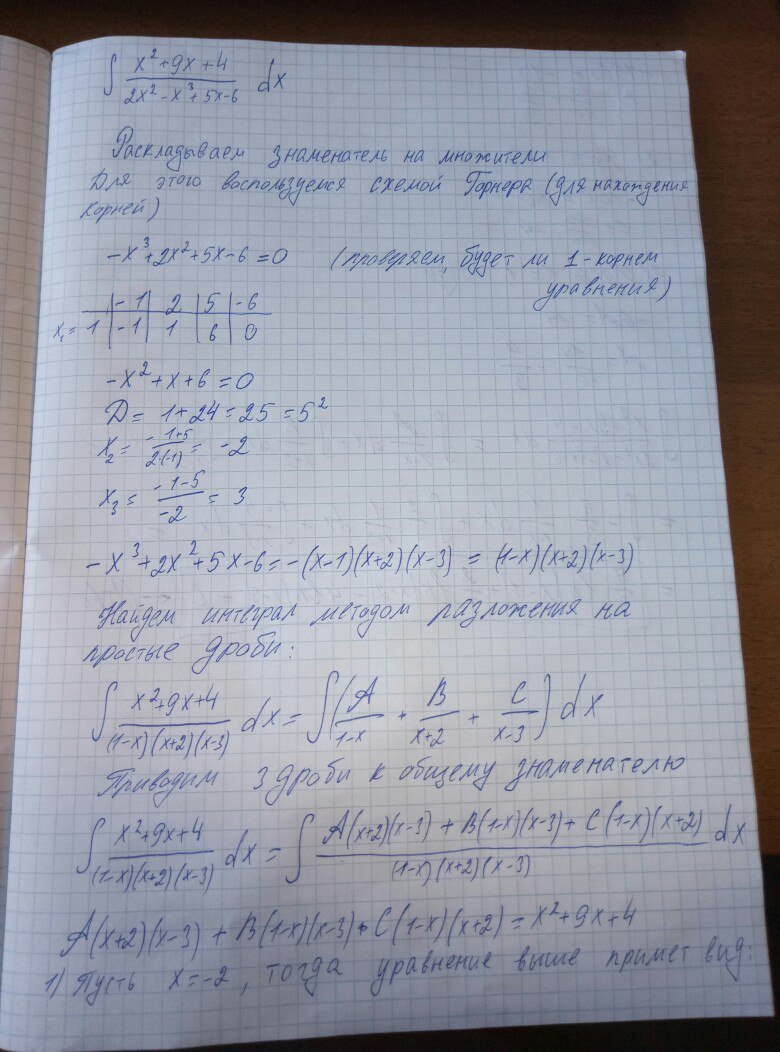 ∫ (x² + 9x + 4)/(2x² - x³ + 5x - 6) dx
Раскладываем знаменатель на множители
Для этого воспользуемся схемой Горнера (для нахождения
корней)
-x³ + 2x² + 5x - 6 = 0 (проверяем, будет ли 1 - корнем
уравнения)
| -1 | 2 | 5 | -6
x₁ = 1 | -1 | 1 | 6 | 0
-x² + x + 6 = 0
D = 1 + 24 = 25 = 5²
x₂ = (-1+5)/(2·(-1)) = -2
x₃ = (-1-5)/(-2) = 3
-x³ + 2x² + 5x - 6 = -(x-1)(x+2)(x-3) = (1-x)(x+2)(x-3)
Найдем интеграл методом разложения на
простые дроби:
∫ (x²+9x+4)/((1-x)(x+2)(x-3)) dx = ∫ (A/(1-x) + B/(x+2) + C/(x-3)) dx
Приводим 3 дроби к общему знаменателю
∫ (x²+9x+4)/((1-x)(x+2)(x-3)) dx = ∫ (A(x+2)(x-3) + B(1-x)(x-3) + C(1-x)(x+2))/((1-x)(x+2)(x-3)) dx
A(x+2)(x-3) + B(1-x)(x-3) + C(1-x)(x+2) = x² + 9x + 4
1) Пусть x = -2, тогда уравнение выше примет вид: